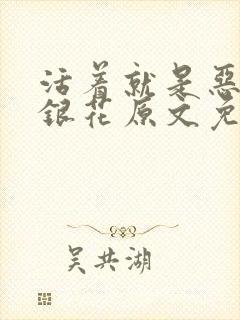 活着就是恶
銀花原文免
吴共湖